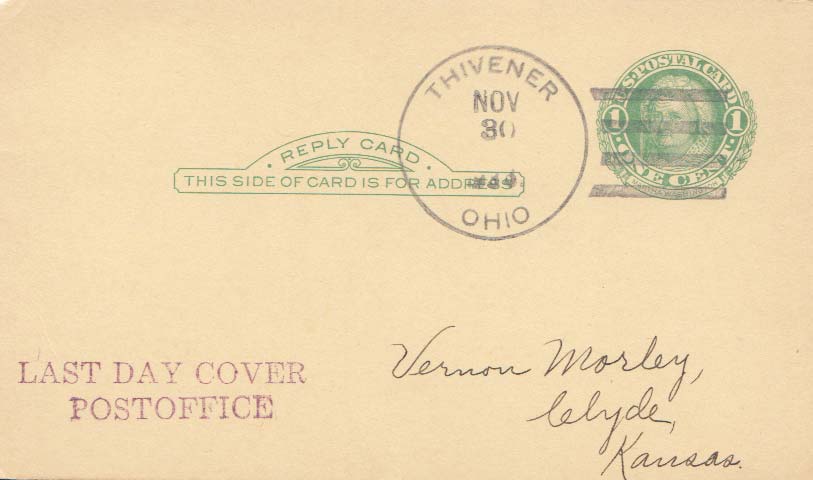 THIVENER
NOV
30
OHIO
U.S. POSTAL CARD
1 1
ONE CENT
REPLY CARD
THIS SIDE OF CARD IS FOR ADDRESS
LAST DAY COVER
POSTOFFICE
Vernon Morley,
Clyde,
Kansas.